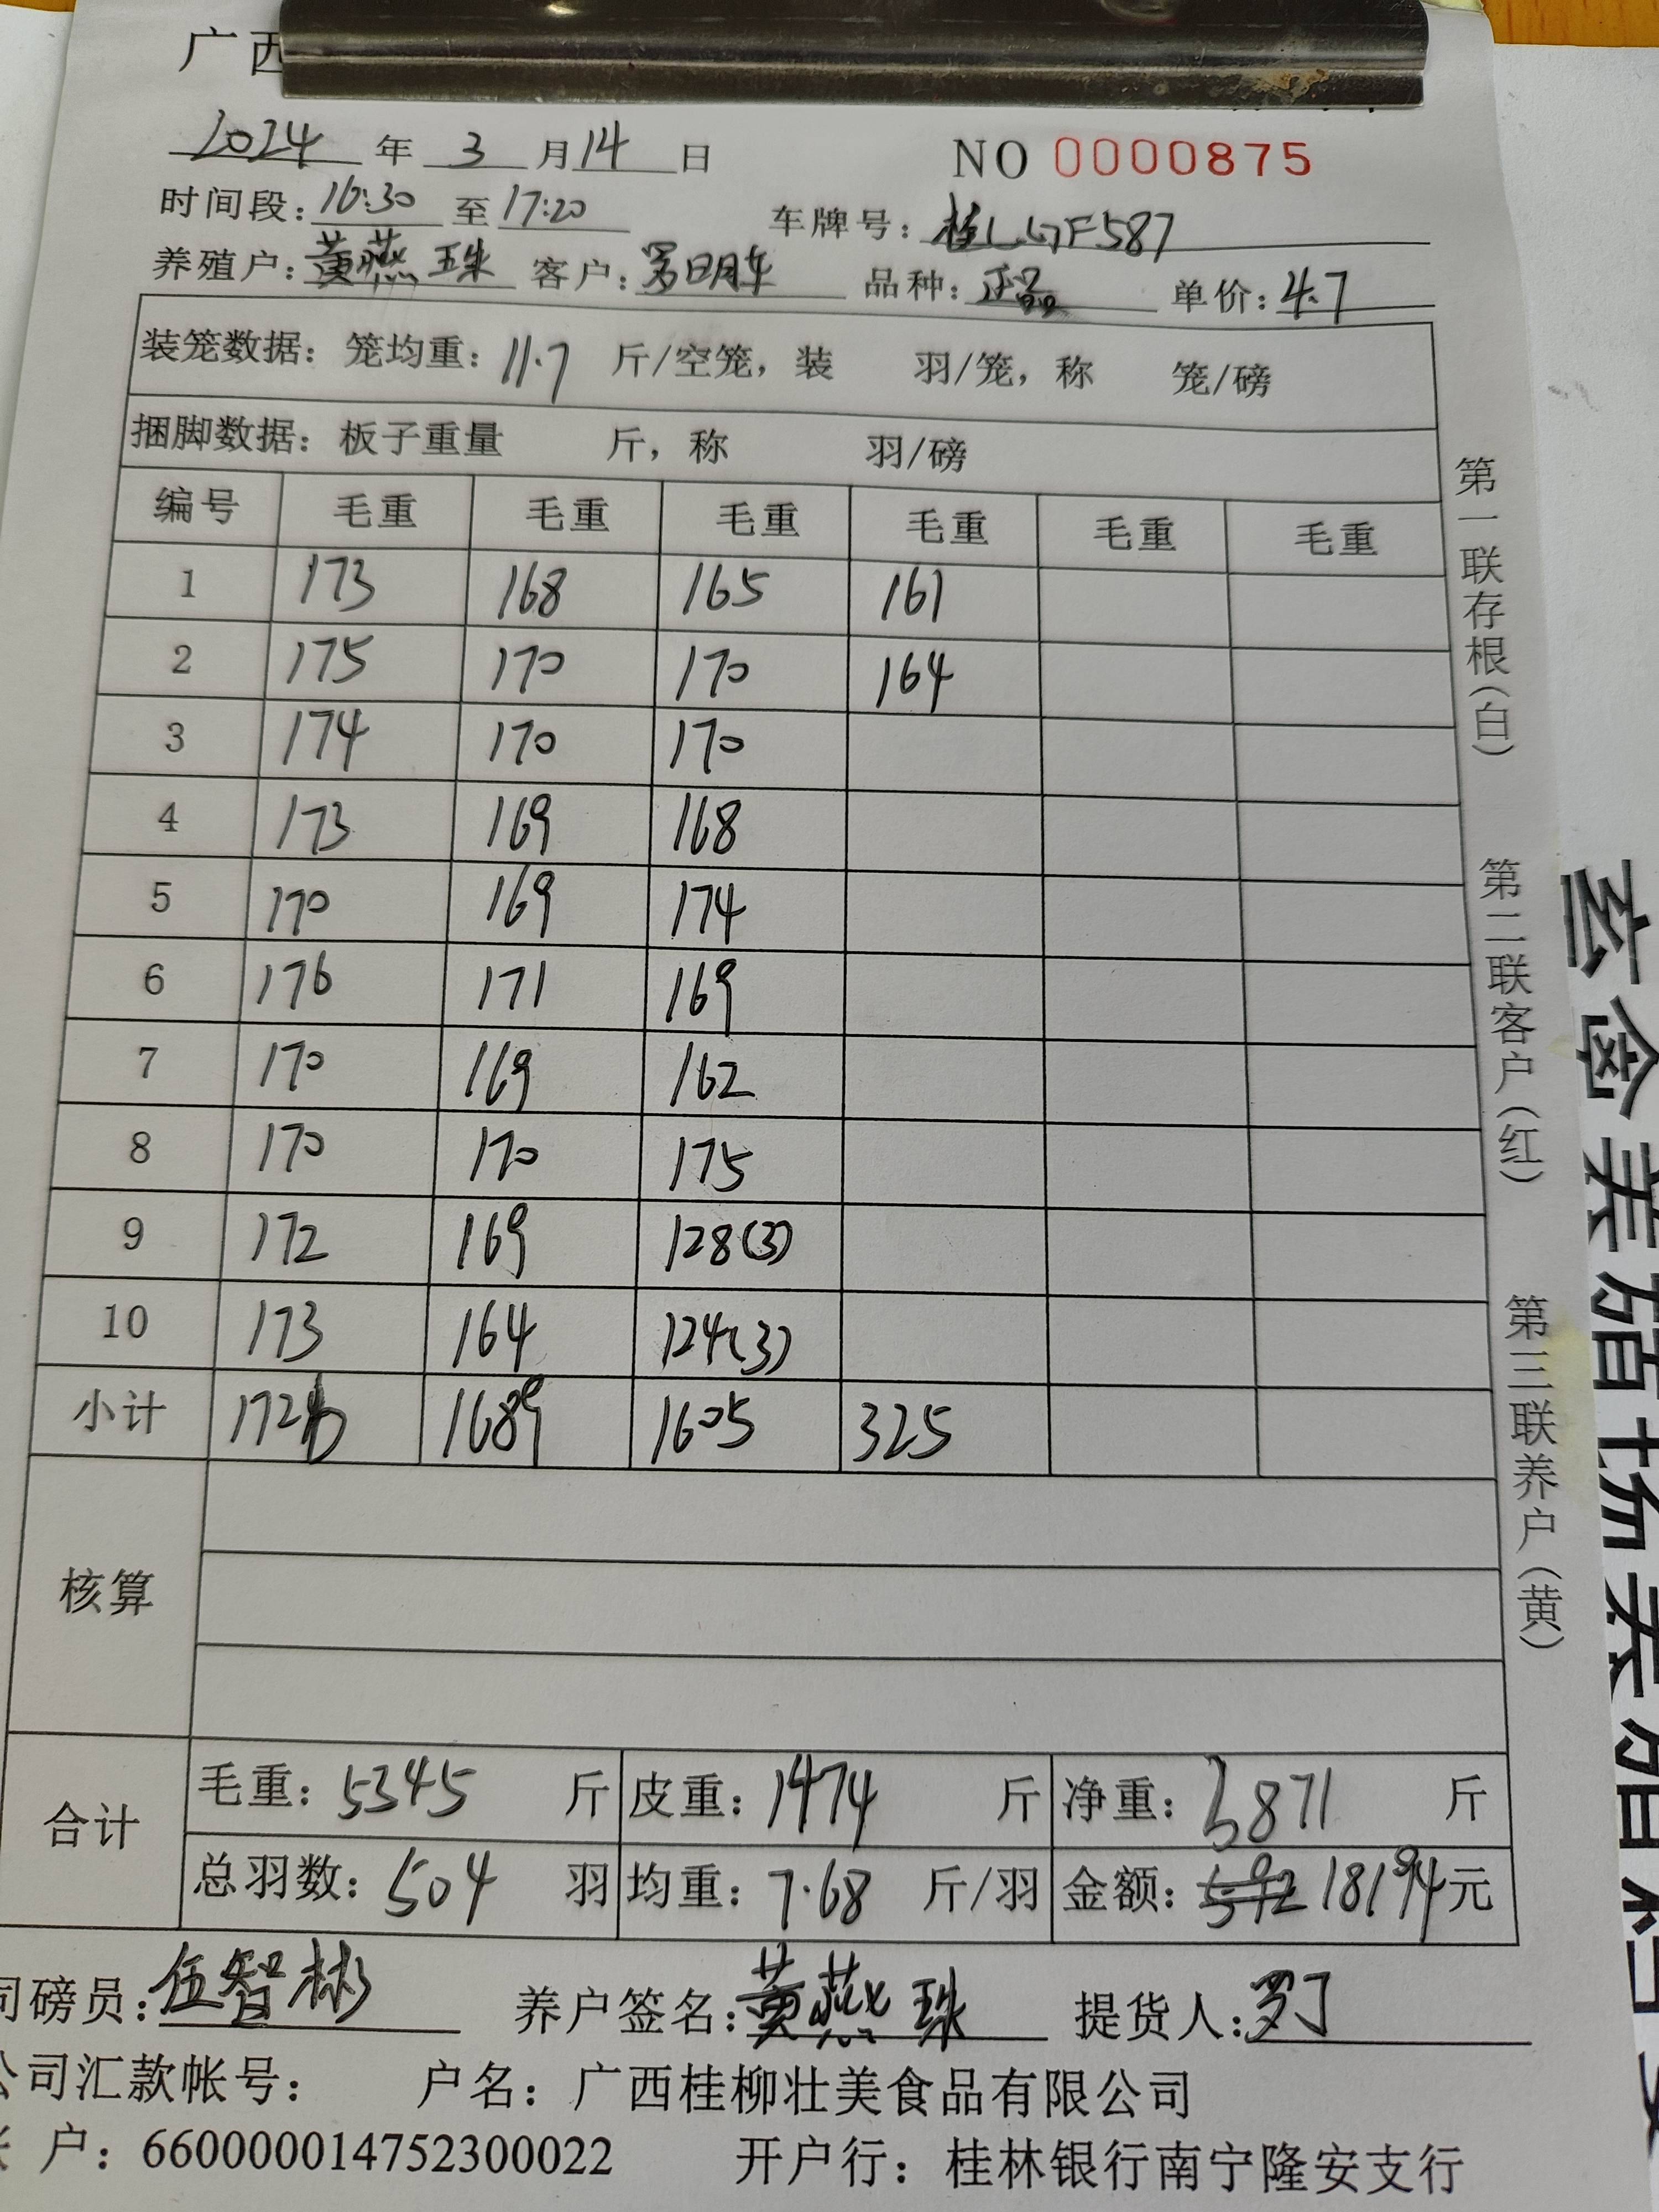 广西
2024 年 3 月 14 日 NO 0000875
时间段: 16:30 至 17:20 车牌号: 587
养殖户: 黄燕珠 客户: 罗明车 品种: 正品 单价: 4.7
装笼数据: 笼均重: 11.7 斤/空笼, 装 羽/笼, 称 笼/磅
捆脚数据: 板子重量 斤, 称 羽/磅
编号 毛重 毛重 毛重 毛重 毛重 毛重
1 173 168 165 161
2 175 170 170 164
3 174 170 170
4 173 169 168
5 170 169 174
6 176 171 169
7 170 169 162
8 170 170 175
9 172 169 128(3)
10 173 164 124(3)
小计 1726 1689 1605 325
核算
合计
毛重: 5345 斤 皮重: 1474 斤 净重: 3871 斤
总羽数: 504 羽 均重: 7.68 斤/羽 金额: 18194 元
司磅员: 伍智彬 养户签名: 黄燕珠 提货人: 罗
公司汇款帐号: 户名: 广西桂柳壮美食品有限公司
户: 660000014752300022 开户行: 桂林银行南宁隆安支行
第一联存根(白)
第二联客户(红)
第三联养户(黄)